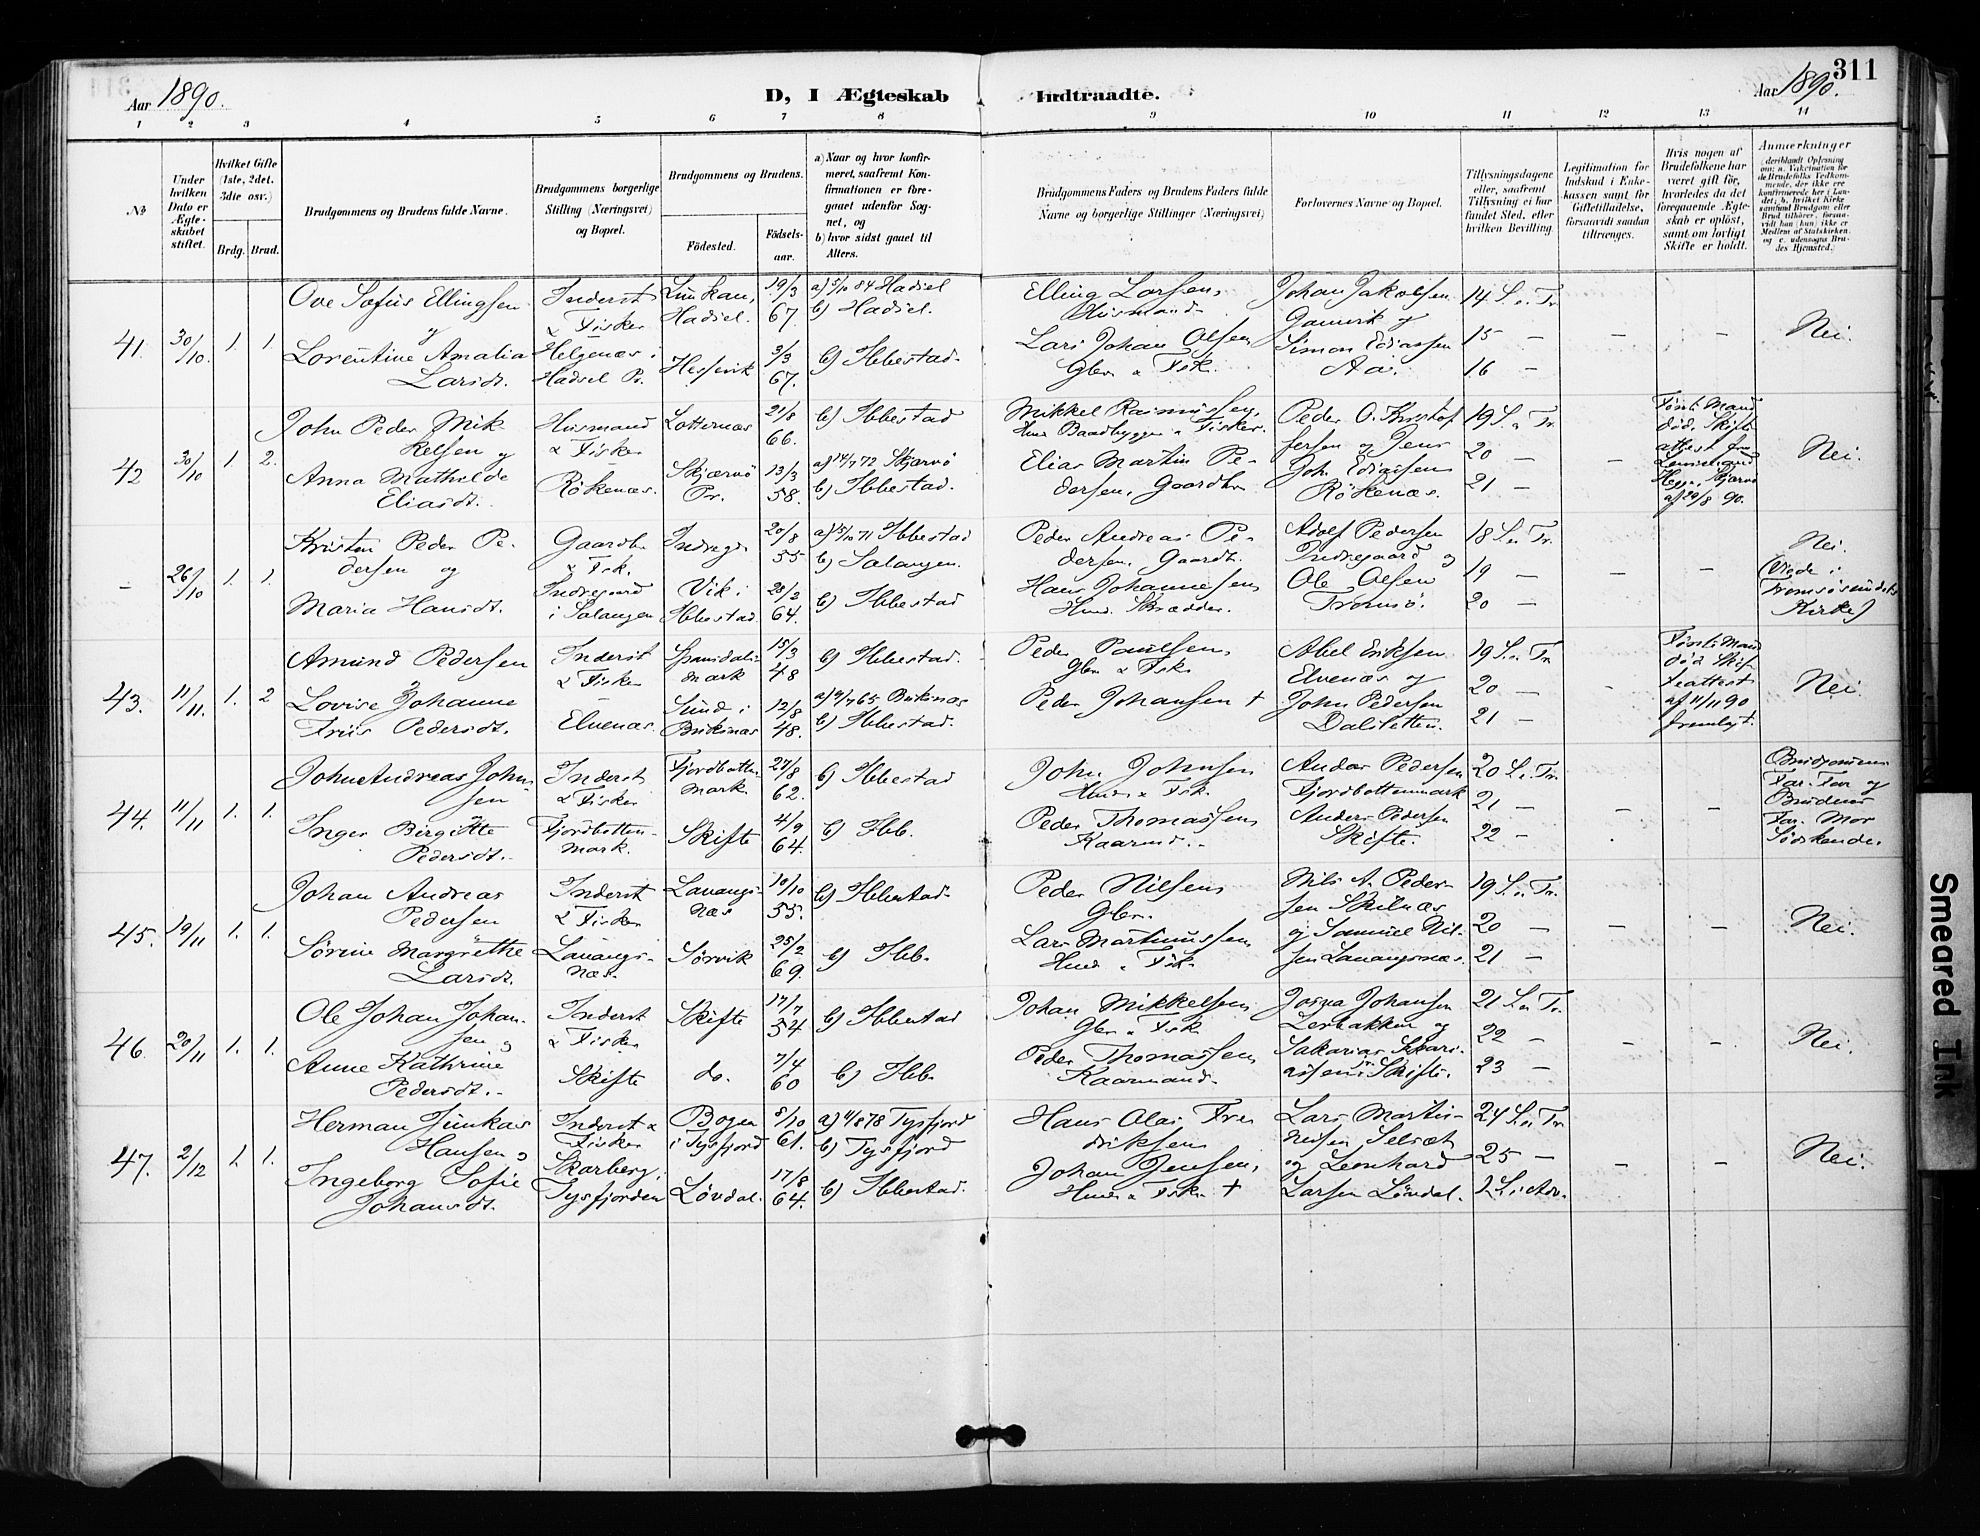 311
Aar 1890.
D, I Ægteskab Indtraadte.
Aar 1890.
1 2 3 4 5 6 7 8 9 10 11 12 13 14
No
Under hvilken Dato er Ægteskabet stiftet.
Hvilket Gifte (1ste, 2det, 3die osv.)
Brdg. Brud.
Brudgommens og Brudens fulde Navne.
Brudgommens borgerlige Stilling (Næringsvei) og Bopæl.
Brudgommens og Brudens.
Fødested. Fødselsaar.
a) Naar og hvor konfirmeret, saafremt Konfirmationen er foregaaet udenfor Sognet, og
b) hvor sidst gaaet til Alters.
Brudgommens Faders og Brudens Faders fulde Navne og borgerlige Stillinger (Næringsvei)
Forlovernes Navne og Bopæl.
Tillysningsdagene eller, saafremt Tillysning ei har fundet Sted, efter hvilken Bevilling.
Legitimation for Indskud i Enkekassen samt for Giftetilladelse, forsaavidt saadan tiltrænges.
Hvis nogen af Brudefolkene har været gift før, hvorledes da det foregaaende Ægteskab er opløst, samt om lovligt Skifte er holdt.
Anmærkninger
41. 30/10. 1. 1.
Ove Sofus Ellingsen
og
Lorentine Amalia
Larsdt.
Inderst
& Fisker
Helgenæs i
Hadsel Pr.
Hadsel. 19/3 67.
3/3 67.
a) 5/10 84 Hadsel
b) Hadsel.
b) Ibbestad.
Elling Larsen,
Husmand
Lars Johan Olsen
Gbr. & Fisk.
Johan Jakobsen
Gamvik og
Simon Ediassen
Aa.
14 S. e. Tr.
15 —
16 —
– –
Nei.
42 30/10 1 2.
John Peder Mik-
kelsen og
Anna Mathilde
Eliasdt.
Husmand
& Fisker
Rökenæs.
Lotternæs 21/8 66.
Skjærvö
Pr. 13/3 58.
b) Ibbestad
a) 14/7 72 Skjærvö
b) Ibbestad.
Mikkel Rasmussen,
Hmd. Baadbygger & Fisker.
Elias Martin Pe-
dersen, Gaardbr.
Peder O. Kristof
fersen og Jens
Joh. Ediassen
Rökenæs.
19 S. e. Tr.
20 —
21 —
–
død. Skift
attest fra
af 29/8 90.
Nei.
– 26/10 1. 1.
Kristen Peder Pe-
dersen og
Maria Hansdt.
Gaardbr.
& Fsk.
Indregaard
i Salangen
Indregd. 20/8 55
Vik i
Ibbestad 28/2 64.
a) 15/10 71 Ibbestad
b) Salangen.
b) Ibbestad
Peder Andreas Pe-
dersen, Gaardbr.
Hans Johannesen
Hmd. Skrædder.
Adolf Pedersen
Indregaard og
Ole Olsen
Tromsö.
18 S. e. Tr.
19 —
20 —
– –
Nei.
(Viede i
Tromsösundets
Kirke)
43. 11/11. 1. 2
Amund Pedersen
og
Lovise Johanne
Friis Pedersdt.
Inderst
& Fisker
Elvenæs.
Spansdals-
mark 15/3 48
Sund i
12/8 48.
b) Ibbestad.
b) Ibbestad.
Peder Paulsen,
Gbr. & Fsk.
Peder Johansen +
Abel Eriksen
Elvenæs og
John Pedersen
Dalsletten.
19 S. e. Tr.
20 —
21 —
–
død Skif-
teattest
af 11/11 90
fremlagt.
Nei.
44. 11/11 1. 1.
John Andreas John-
sen
Inger Birgitte
Pedersdt.
Inderst
& Fisker
Fjordbotten-
mark.
Fjordbotten
mark 27/8 62.
Skifte 4/9 64.
b) Ibbestad
b) Ibb.
John Johnsen
Hmd. & Fsk.
Peder Thomassen,
Kaarmd.
Andor Pedersen
Fjordbottenmark
Anders Pedersen
Skifte.
20 S. e. Tr.
21 —
22 —
– –
Brudgommens
Far. Far og
Brudens
Far. Mor
Södskende.
45. 19/11 1. 1.
Johan Andreas
Pedersen
Sörine Margrethe
Larsdt.
Inderst
& Fisker
Lavangs-
næs.
Lavangs-
næs 10/10 55.
Sørvik 25/2 69.
b) Ibbestad.
b) Ibb.
Peder Nilsen,
Gbr.
Lars Martinussen
Hmd. & Fsk.
Nils A. Peder-
sen Skilnæs
og Samuel Nil-
sen Lavangsnæs.
19 S. e. Tr.
20 —
21 —
– –
Nei.
46. 20/11 1. 1.
Ole Johan Johan-
sen og
Anne Kathrine
Pedersdt.
Inderst
& Fisker
Skifte
Skifte 17/7 54
do. 7/4 60
b) Ibbestad
b) Ibb.
Johan Mikkelsen,
Gbr. & Fsk.
Peder Thomassen,
Kaarmand.
Johansen
og
Skifte.
21 S. e. Tr.
22 —
23 —
– –
Nei.
47. 2/12 1. 1.
Herman Junkas
Hansen og
Ingeborg Sofie
Johansdt.
Inderst &
Fisker
Skarberg,
Tysfjorden
Bogen
i Tysfjord 5/10 61.
Løvdal. 17/8 64.
Tysfjord
b) Tysfjord
b) Ibbestad.
Hans Olai Fre-
driksen
Johan Jensen,
Hmd. & Fsk. +
Lars Martin-
og Leonhard
Larsen Løvdal.
24 S. e. Tr.
25 —
2 S. i Adv.
– –
Nei.
Smeared Ink